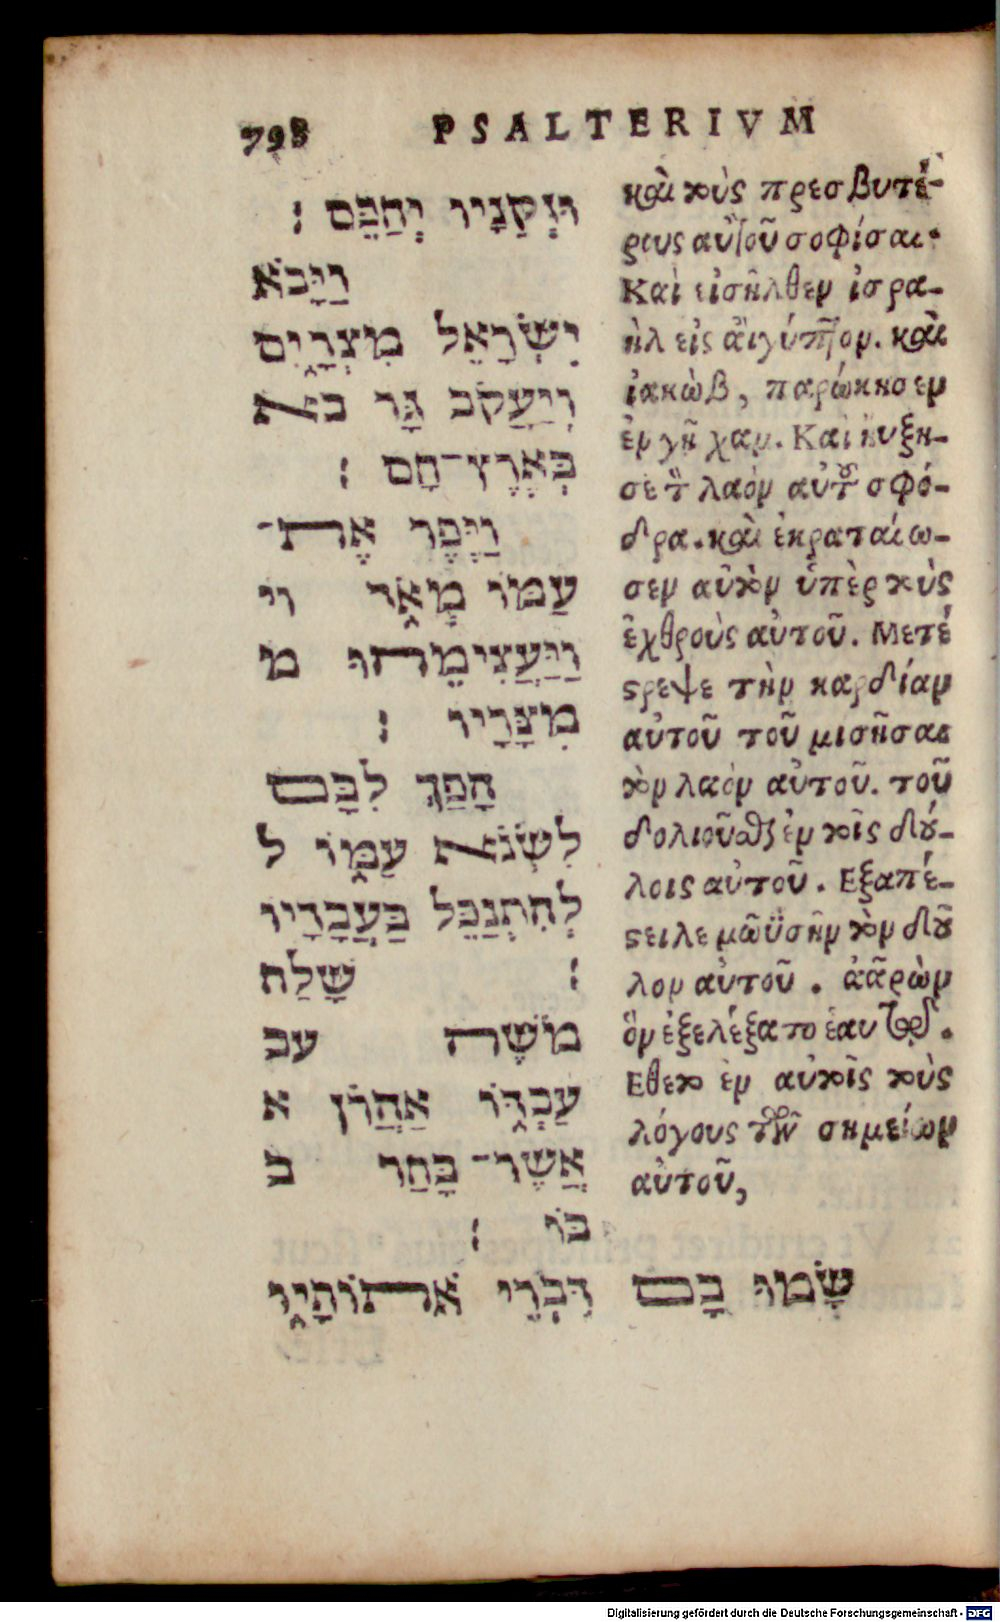 798 PSALTERIVM
וּזְקֵנָיו יְחַכֵּם ׃
וַיָּבֹא
יִשְׂרָאֵל מִצְרָיִם
וְיַעֲקֹב גָּר בא
בְּאֶרֶץ־חָם ׃
וַיֶּפֶר אֶת־
עַמּוֹ מְאֹד וי
וַיַּעֲצִימֵהוּ מ
מִצָּרָיו ׃
הָפַךְ לִבָּם
לִשְׂנֹא עַמּוֹ ל
לְהִתְנַכֵּל בַּעֲבָדָיו
׃ שָׁלַח
מֹשֶׁה עב
עַבְדּוֹ אַהֲרֹן א
אֲשֶׁר־ בָּחַר ב
בּוֹ ׃
שָׂמוּ בָם דִּבְרֵי אֹתוֹתָיו
καὶ τοὺς πρεσβυτέ-
ρους αὐτοῦ σοφίσαι.
Καὶ εἰσῆλθεν ἰσρα-
ὴλ εἰς ἄιγύπτον. καὶ
ἰακὼβ, παρώκησεν
ἐν γῇ χαμ. Καὶ ἤυξη-
σε τὸν λαὸν αὐτοῦ σφό-
δρα. καὶ ἐκραταίω-
σεν αὐτὸν ὑπὲρ τοὺς
ἐχθροὺς αὐτοῦ. Μετέ
στρεψε τὴν καρδίαν
αὐτοῦ τοῦ μισῆσαι
τὸν λαὸν αὐτοῦ. τοῦ
δολιοῦσθαι ἐν τοῖς δού-
λοις αὐτοῦ. Εξαπέ-
στειλε μωϋσῆν τὸν δοῦ
λον αὐτοῦ. ἀαρὼν
ὃν ἐξελέξατο ἑαυτῷ.
Εθετο ἐν αὐτοῖς τοὺς
λόγους τῶν σημείων
αὐτοῦ,
Digitalisierung gefördert durch die Deutsche Forschungsgemeinschaft - DFG